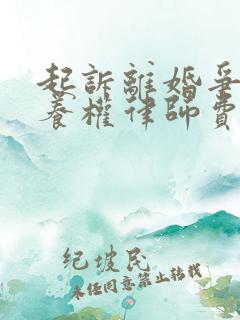 起訴離婚爭
養權律師費
纪坡民
未经同意禁止转载